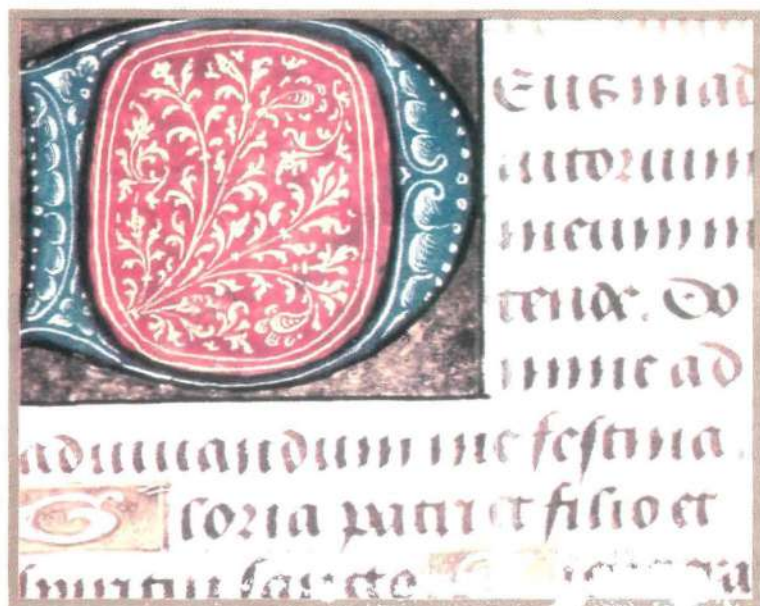 DEus in ad
iutorium
meum in
tende. Do
mine ad
adiuuandum me festina.
Gloria patri et filio et
spiritui sancto.